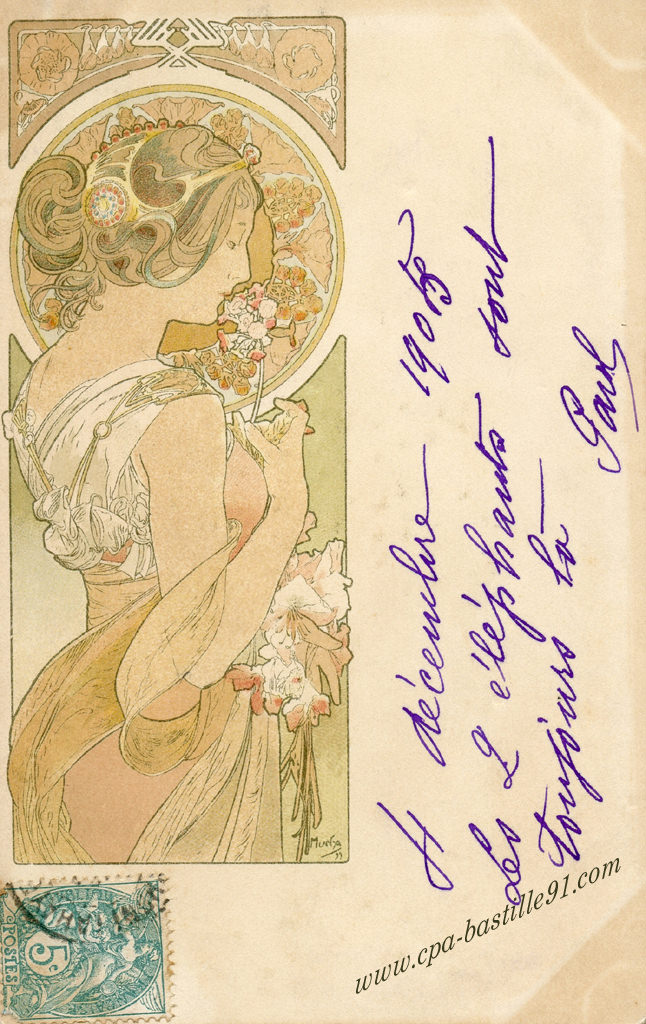 4 décembre 1905
Les 2 éléphants sont
toujours là
Paul
Mucha
99
5c
POSTES
www.cpa-bastille91.com